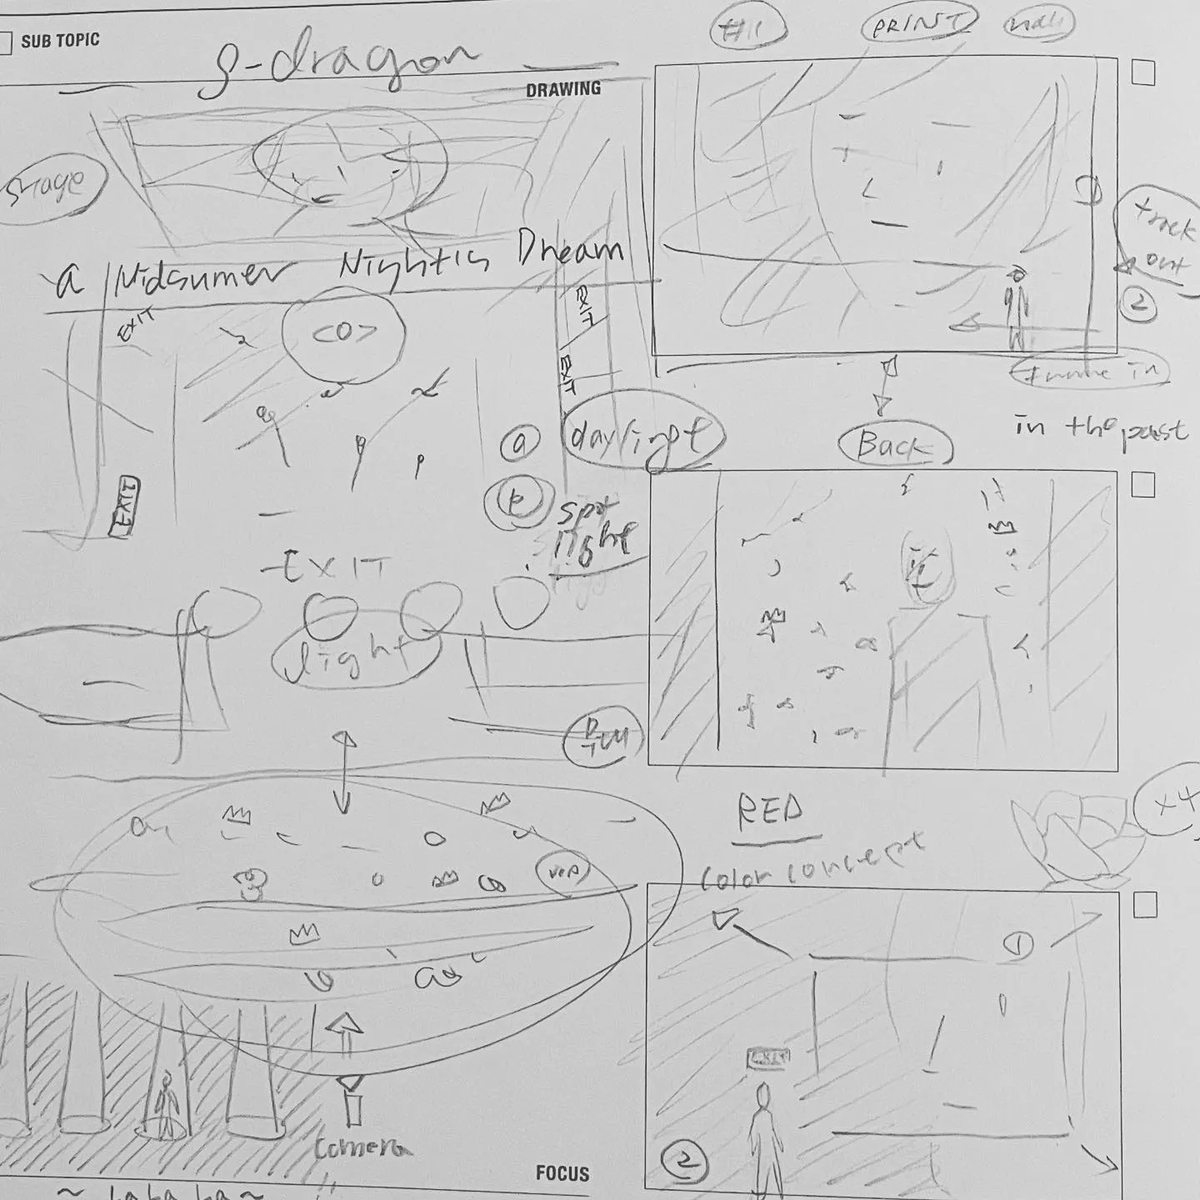 SUB TOPIC
g-dragon
DRAWING
stage
a Midsumer Night is Dream
EXIT
<O>
EXIT
EXIT
EXIT
a
daylight
b
spot
light
EXIT
light
Camera
FOCUS
#11
PRINT
track
out
2
frame in
in the past
Back
RED
color concept
x4
1
EXIT
2